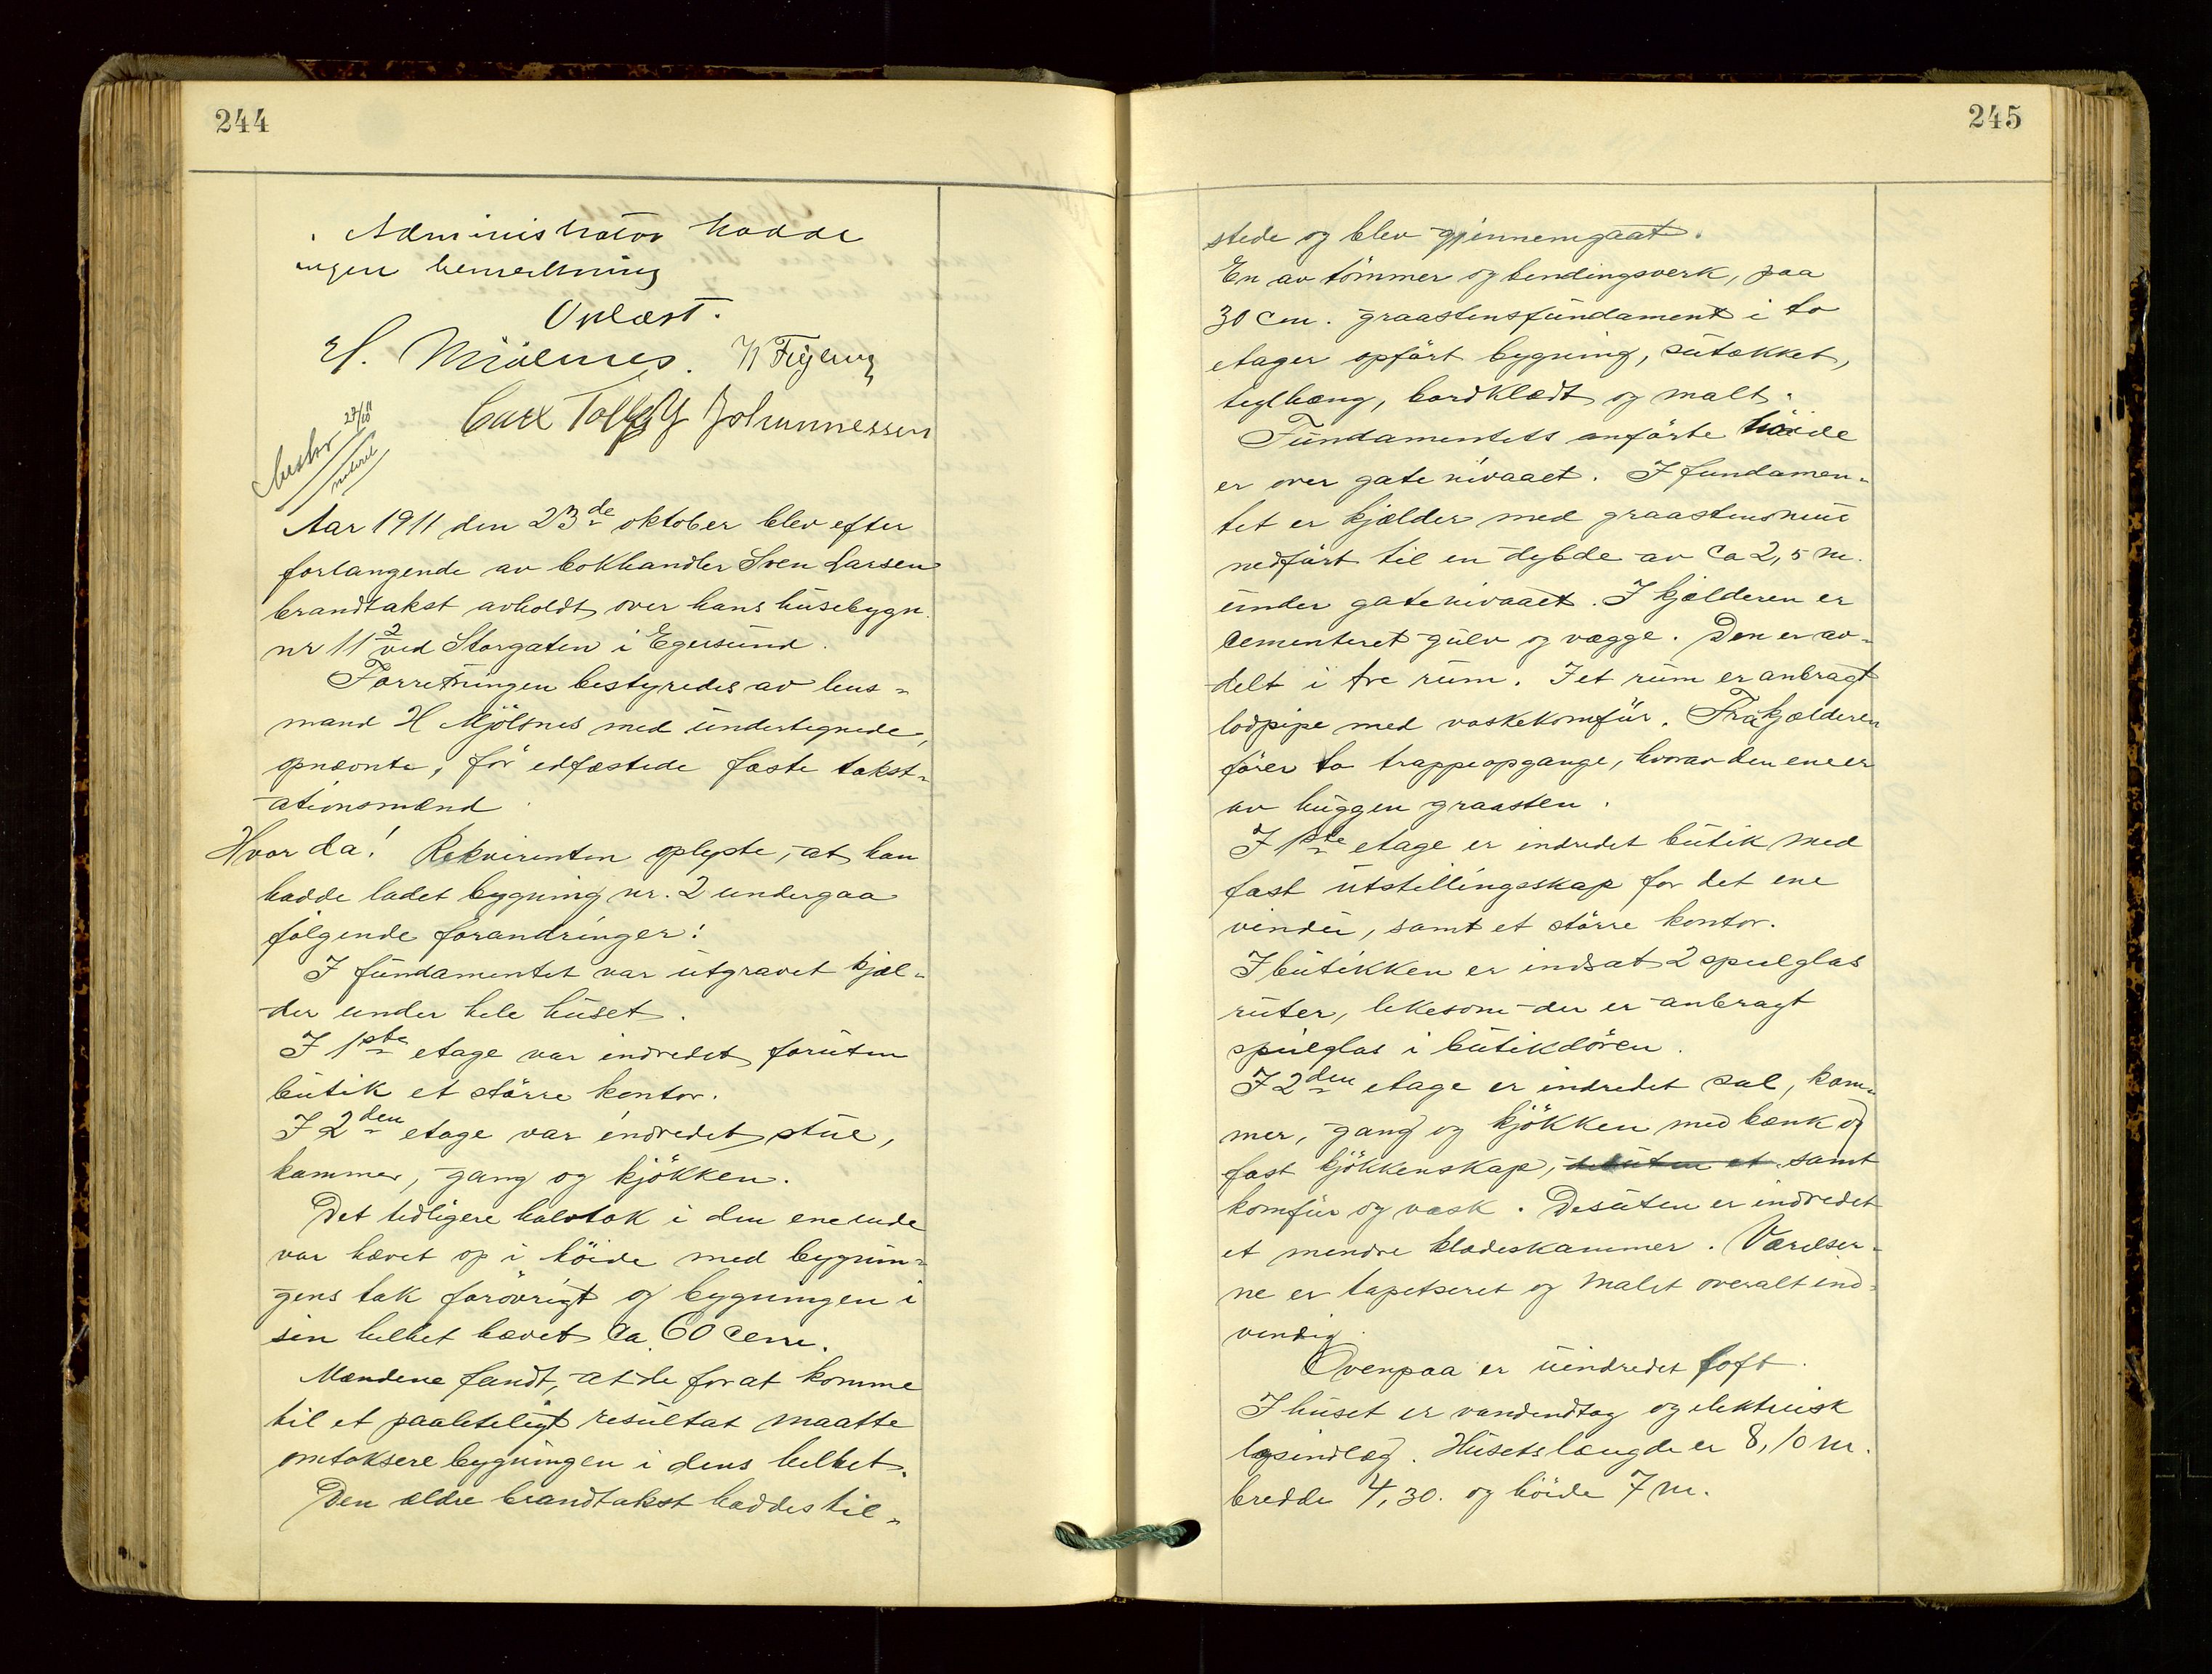 244
Administrator hadde
ingen bemerkning
Oplæst.
H. Mjölsnes.
Carl Tollefsen Johannessen
noteret
Aar 1911 den 23de oktober blev efter
forlangende av bokhandler Sven Larsen
brandtakst avholdt over hans husebygn.
nr 11² ved Storgaten i Egersund.
Forretningen bestyredes av lens-
mand H Mjölsnes med undertegnede,
opnævnte, för edfæstede faste takst-
ationsmænd
Hvor da! Rekvirenten oplyste, at han
hadde ladet bygning nr. 2 undergaa
følgende forandringer:
I fundamentet var utgravet kjæl-
der under hele huset.
I 1ste etage var indredet foruten
butik et större kontor.
I 2den etage var indredet stue,
kammer, gang og kjökken.
Det tidligere halvtak i den ene ende
var hævet op i höide med bygnin-
gens tak forövrigt og bygningen i
sin helhet hævet ca. 60 cem.
Mændene fandt, at de for at komme
til et paaliteligt resultat maatte
omtaksere bygningen i dens helhet.
Den ældre brandtakst haddes til-
245
stede og blev gjinnemgaat.
En av tömmer og bendingsverk, paa
30 cm. graastensfundament i to
etager opfört bygning, sutækket,
teglhæng, bordklædt og malt.
Fundamentets anförte höide
er over gatenivaaet. I fundamen-
tet er kjælder med graastensmur
nedfört til en dybde av ca 2,5 m.
under gatenivaaet. I kjælderen er
cementeret gulv og vægge. Den er av-
delt i tre rum. I et rum er anbragt
lodpipe med vaskekomfur. Fra kjælderen
förer to trappeopgange, hvorav den ene er
av huggen graasten.
I 1ste etage er indredet butik med
fast utstillingsskap for det ene
vindu, samt et större kontor.
I butikken er indsat 2 speilglas
ruter, likesom der er anbragt
speilglas i butikdören.
I 2den etage er indredet sal, kam-
mer, gang og kjökken med bænk og
fast kjökkenskap, desuten et samt
komfur og vask. Desuten er indredet
et mindre klædeskammer. Værelser-
ne er tapetseret og malet overalt ind-
vendig.
Ovenpaa er uindredet loft.
I huset er vandindtag og elektrisk
lysindlæg. Husets længde er 8,10 m.
bredde 4,30. og höide 7 m.